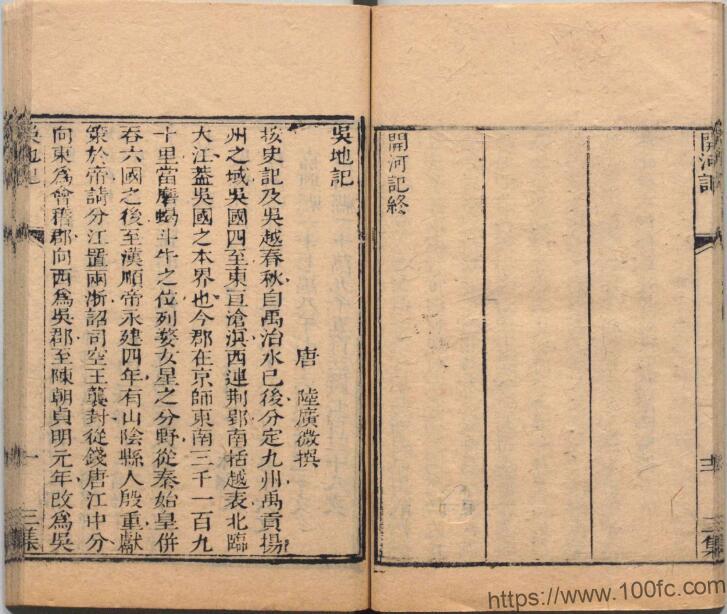 開河記
三集
開河記終
吳地記
唐 陸廣微撰
按史記及吳越春秋自禹治水已後分定九州禹貢揚
州之域吳國四至東亘滄溟西連荆郢南括越表北臨
大江蓋吳國之本界也今郡在京師東南三千一百九
十里當磨蝎斗牛之位列婺女星之分野從秦始皇併
吞六國之後至漢順帝永建四年有山陰縣人殷重獻
策於帝請分江置兩浙詔司空王龔封從錢唐江中分
向東爲會稽郡向西爲吳郡至陳朝貞明元年改爲吳
吳地記
一
三集
https://www.100fc.com